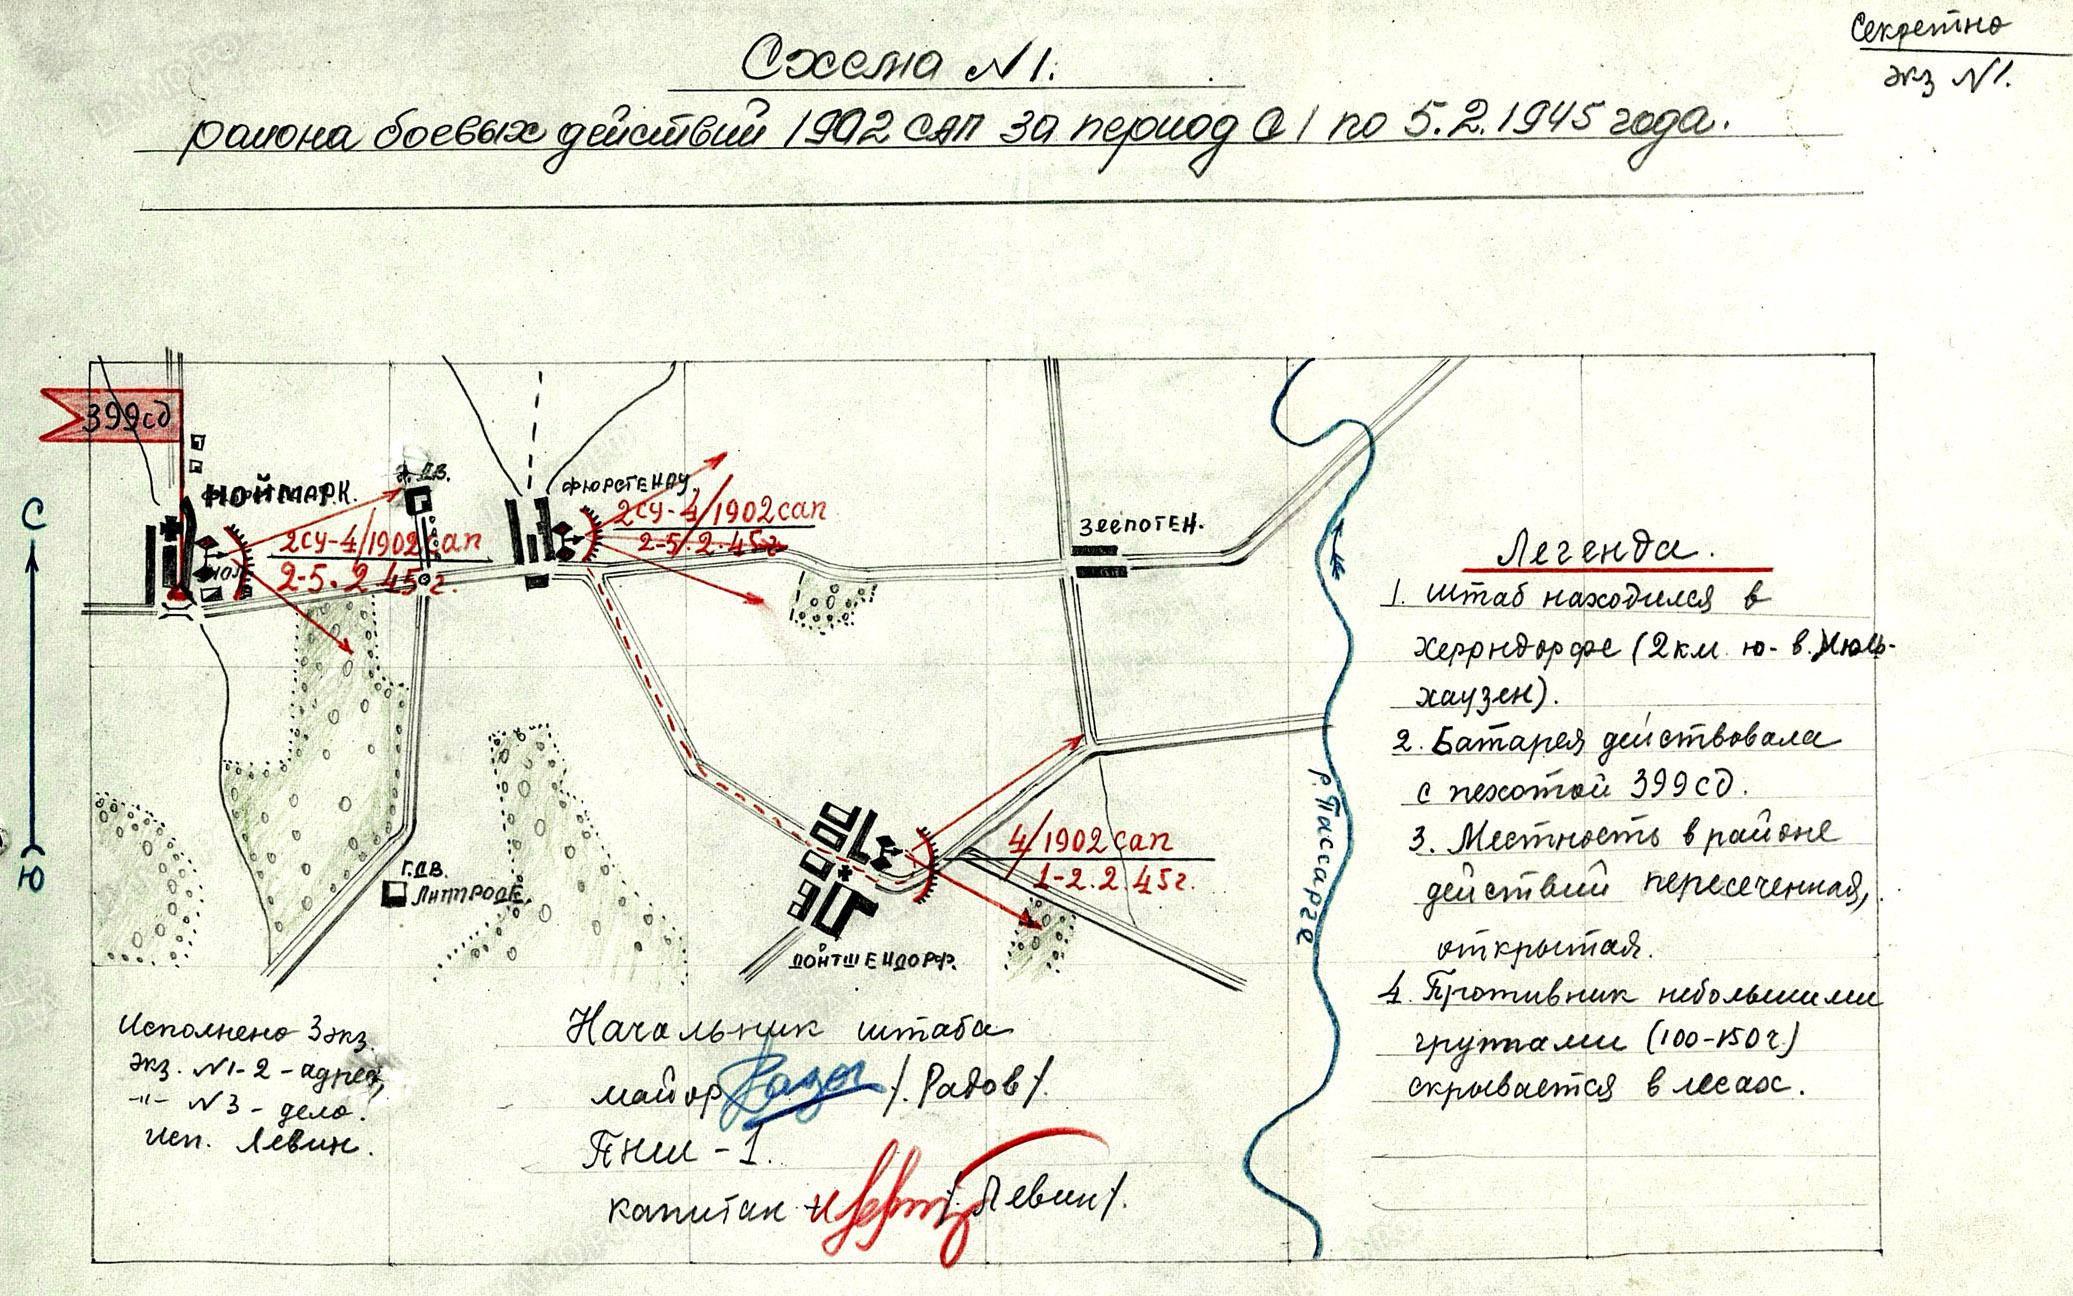 Секретно
экз №1.
Схема №1.
района боевых действий 1902 САП за период с 1 по 5.2.1945 года.
399сд
НОЙМАРК.
Г.ДВ.
ФЮРСТЕНАУ.
2СУ-4/1902 сап
2-5.2.45г.
2СУ-4/1902 сап
2-5.2.45г.
ЗЕЕПОТЕН.
С
Ю
р. Пассарге
Г.ДВ.
ЛИТТРОДЕ.
4/1902 сап
1-2.2.45г.
ДОНТШЕНДОРФ.
Легенда.
1. Штаб находился в
Херрндорфе (2км. ю-в. Мюль-
хаузен).
2. Батарея действовала
с пехотой 399сд.
3. Местность в районе
действий пересеченная,
открытая.
4. Противник небольшими
группами (100-150ч.)
скрывается в лесах.
Исполнено 3 экз.
экз. №1-2 - адрес,
-"- №3 - дело.
исп. Левин.
Начальник штаба
майор /Радов/.
ПНШ-1.
капитан /Левин/.